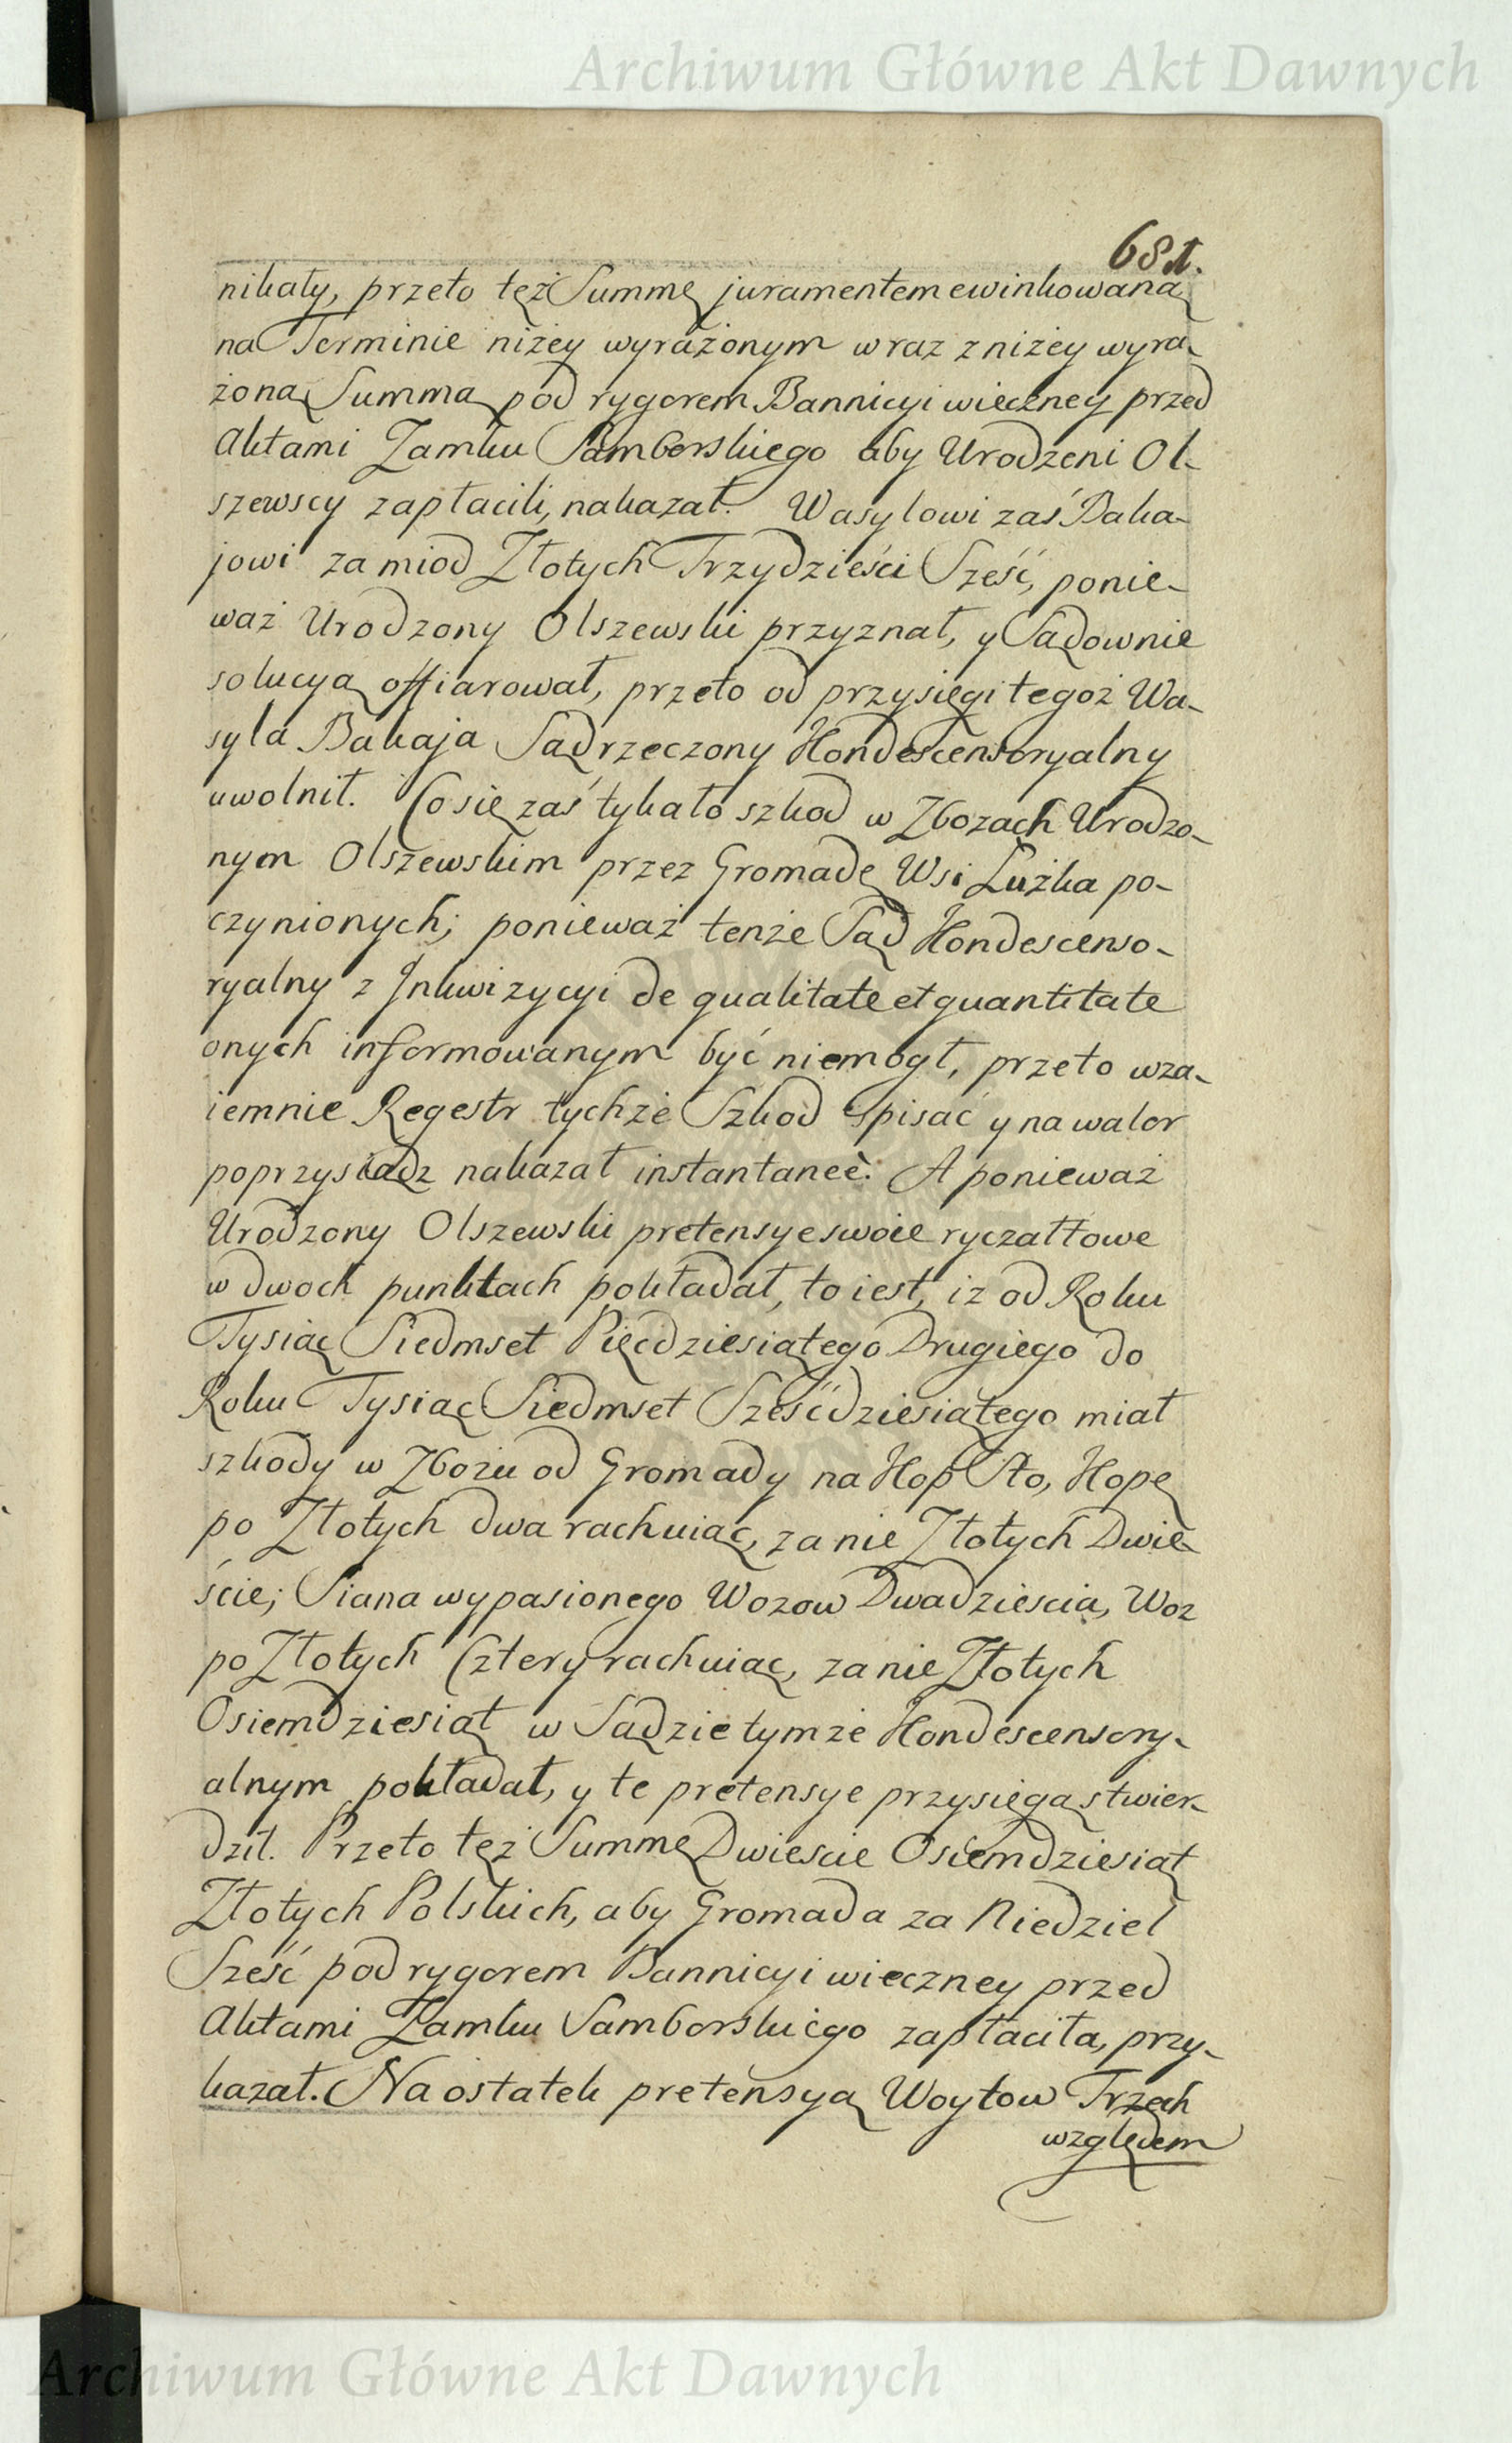 Archiwum Główne Akt Dawnych
681.
nikały, przeto tęż Summę juramentem ewinkowaną
na Terminie niżey wyrażonym wraz z niżey wyra-
żoną Summą pod rygorem Bannicyi wieczney przed
Aktami Zamku Samborskiego aby Urodzeni Ol-
szewscy zapłacili, nakazał. Wasylowi zaś Baka-
jowi za miod Złotych Trzydzieści Sześć, ponie-
waż Urodzony Olszewski przyznał, y Sądownie
solucyą offiarował, przeto od przysięgi tegoż Wa-
syla Bakaja Sąd rzeczony Kondescensoryalny
uwolnił. Co się zaś tykało szkod w Zbozach Urodzo-
nym Olszewskim przez Gromadę Wsi Łużka po-
czynionych; ponieważ tenże Sąd Kondescenso-
ryalny z Inkwizycyi de qualitate et quantitate
onych informowanym być niemogł, przeto wza-
iemnie Regestr tychże Szkod spisać y na walor
poprzysiądz nakazał instantaneè. A ponieważ
Urodzony Olszewski pretensye swoie ryczałtowe
w dwoch punktach pokładał, to iest, iz od Roku
Tysiąc Siedmset Pięćdziesiątego Drugiego do
Roku Tysiąc Siedmset Sześćdziesiątego miał
szkody w Zbożu od Gromady na Kop Sto, Kopę
po Złotych dwa rachuiąc, za nie Złotych Dwie-
ście; Siana wypasionego Wozow Dwadziescia, Woz
po Złotych Cztery rachuiąc, za nie Złotych
Osiemdziesiąt w Sądzie tymże Kondescensory-
alnym pokładał, y te pretensye przysięgą stwier-
dził. Przeto tęż Summę Dwiescie Osiemdziesiąt
Złotych Polskich, aby Gromada za Niedziel
Sześć pod rygorem Bannicyi wieczney przed
Aktami Zamku Samborskiego zapłaciła, przy-
kazał. Na ostatek pretensyą Woytow Trzech
względem
Archiwum Główne Akt Dawnych